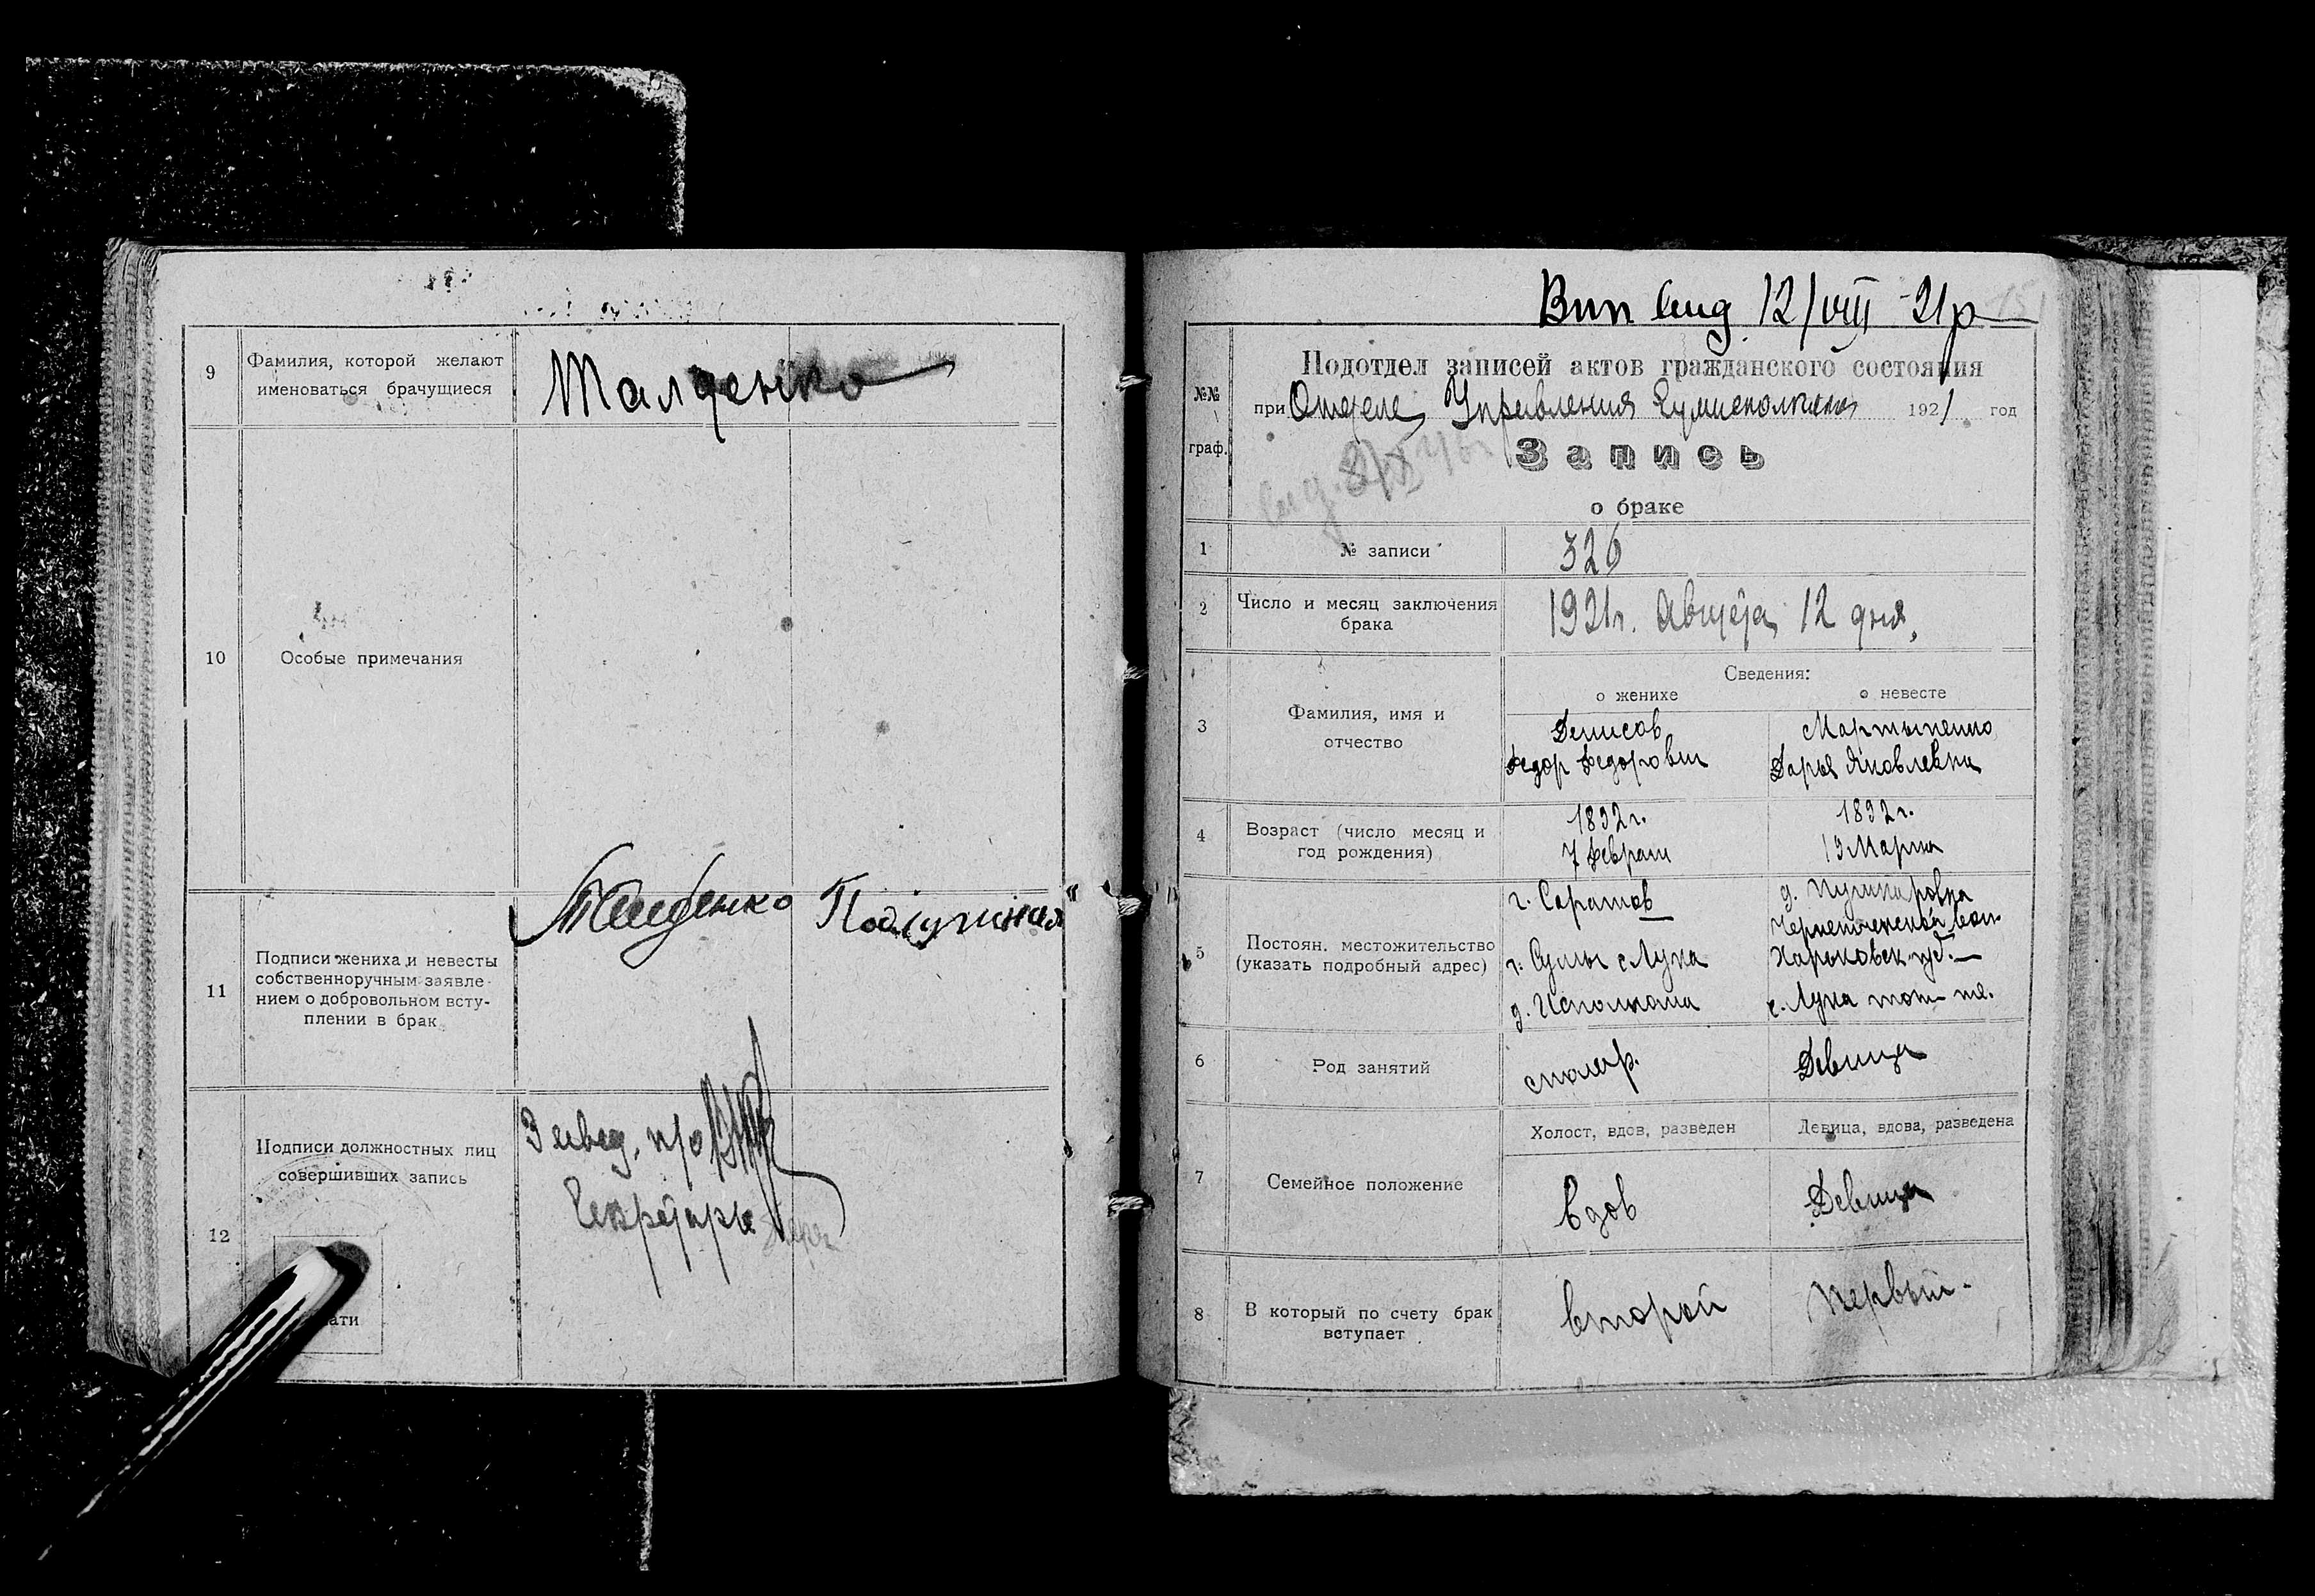 9
Фамилия, которой желают
именоваться брачущиеся
Талденко
10
Особые примечания
11
Подписи жениха и невесты
собственноручным заявле-
нием о добровольном всту-
плении в брак
12
Подписи должностных лиц
совершивших запись
Завед. п/о
Секретарь
Вип вид 12/VIII -21р
№№
граф.
Подотдел записей актов гражданского состояния
при Отделе Управления 1921 год
Запись
о браке
1
№ записи
326
2
Число и месяц заключения
брака
1921г. Августа 12 дня,
3
Фамилия, имя и
отчество
Сведения:
о женихе
о невесте
Денисов
Федор Федорович
Мартыненко
Дарья Яковлевна
4
Возраст (число месяц и
год рождения)
1892г.
7 Февраля
1892г.
19 Марта
5
Постоян. местожительство
(указать подробный адрес)
г. Саратов
г. Сумы с Лука
д. Исполкома
д. Пушкаровка
Харьковск. губ.
с. Лука том же.
6
Род занятий
столяр.
Девица
7
Семейное положение
Холост, вдов, разведен
Девица, вдова, разведена
вдов
Девица
8
В который по счету брак
вступает
второй
первый.